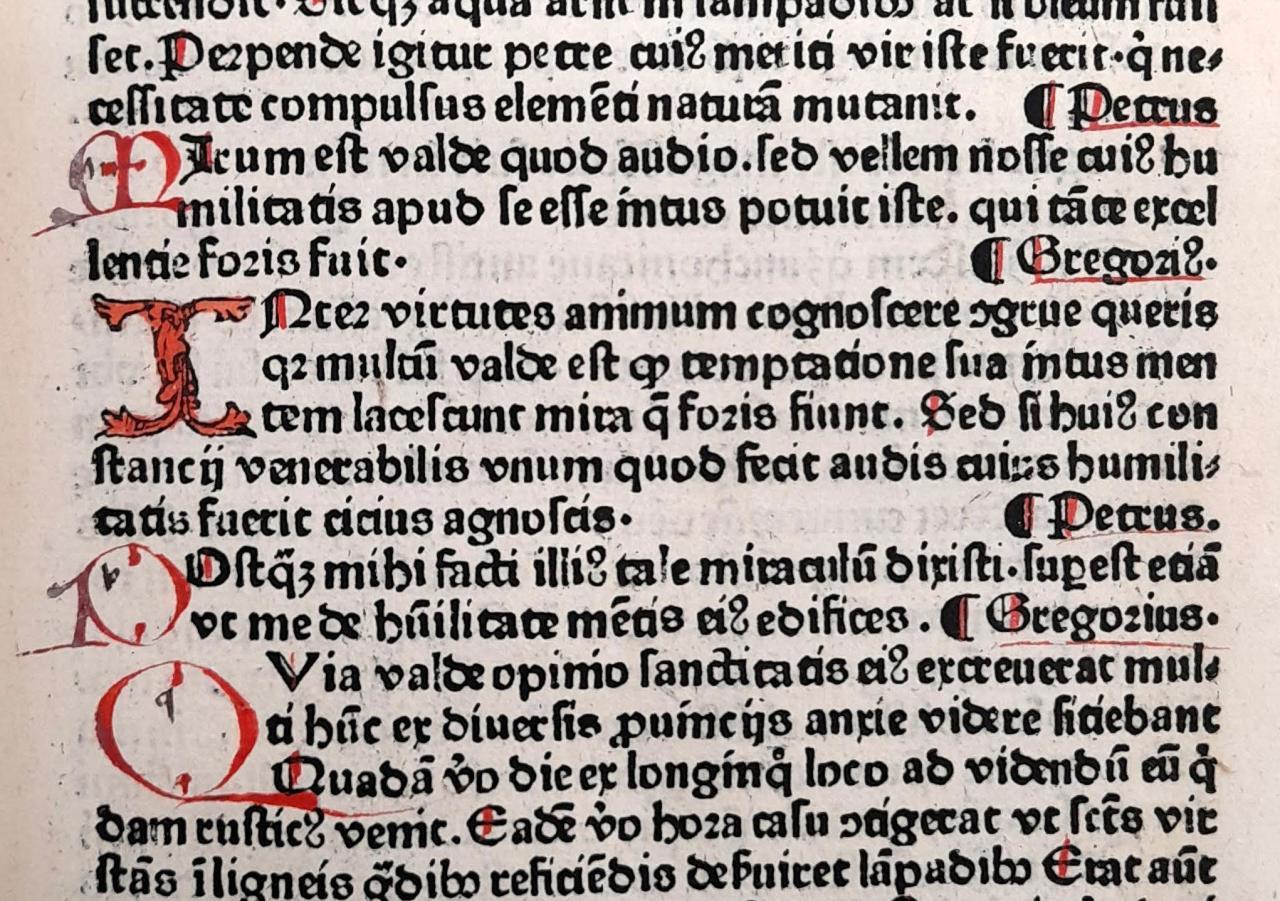 succendit. Sicqꝫ aqua arsit in lampadibꝰ ac si oleum fuis
set. Perpende igitur petre cuiꝰ meriti vir iste fuerit. q̇ ne⸗
cessitate compulsus elemēti naturā mutauit. ¶ Petrus
MIrum est valde quod audio. sed vellem nosse cuiꝰ hu
militatis apud se esse intus potuit iste. qui tāte excel
lentie foris fuit. ¶ Gregoriꝰ.
INter virtutes animum cognoscere ꝯgrue queris
qꝛ multū valde est ꝙ temptatione sua intus men
tem lacescunt mira q̄ foris fiunt. Sed si huiꝰ con
stancij venerabilis vnum quod fecit audis cuius humili⸗
tatis fuerit cicius agnoscis. ¶ Petrus.
POstq̄ꝫ mihi facti illiꝰ tale miraculū dixisti. suꝑest etiā
vt me de hūilitate mētis eiꝰ edifices. ¶ Gregorius.
QVia valde opinio sanctitatis eiꝰ excreuerat mul⸗
ti hūc ex diuersis ꝓuincijs anxie videre sitiebant
Quadā v̇o die ex longinq̇ loco ad videndū eū q̇
dam rusticꝰ venit. Eadē v̇o hora casu ꝯtigerat vt sct̄s vir
stās ī ligneis g̈dibꝰ reficiēdis deßuiret lāpadibꝰ Erat aūt